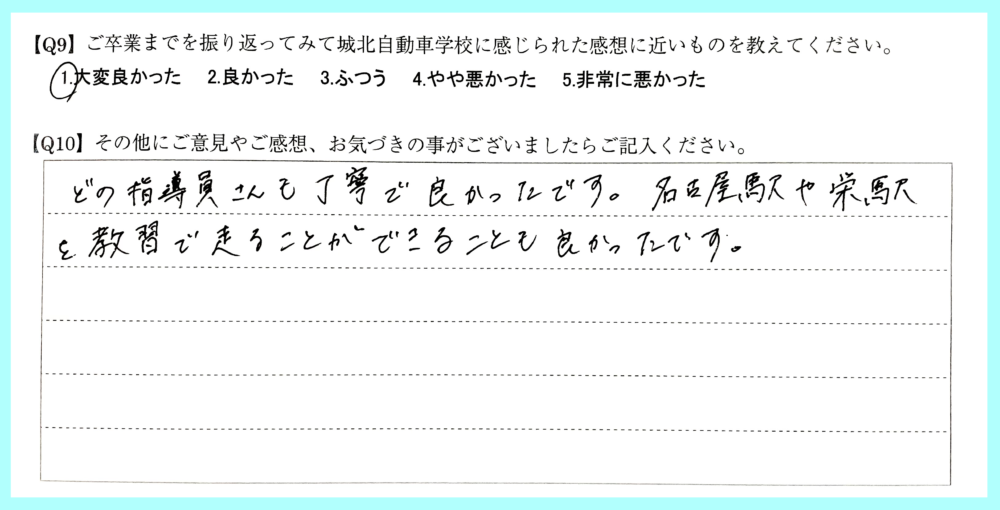 【Q9】ご卒業までを振り返ってみて城北自動車学校に感じられた感想に近いものを教えてください。
1.大変良かった 2.良かった 3.ふつう 4.やや悪かった 5.非常に悪かった
【Q10】その他にご意見やご感想、お気づきの事がございましたらご記入ください。
どの指導員さんも丁寧で良かったです。名古屋駅や栄駅
を教習で走ることができることも良かったです。